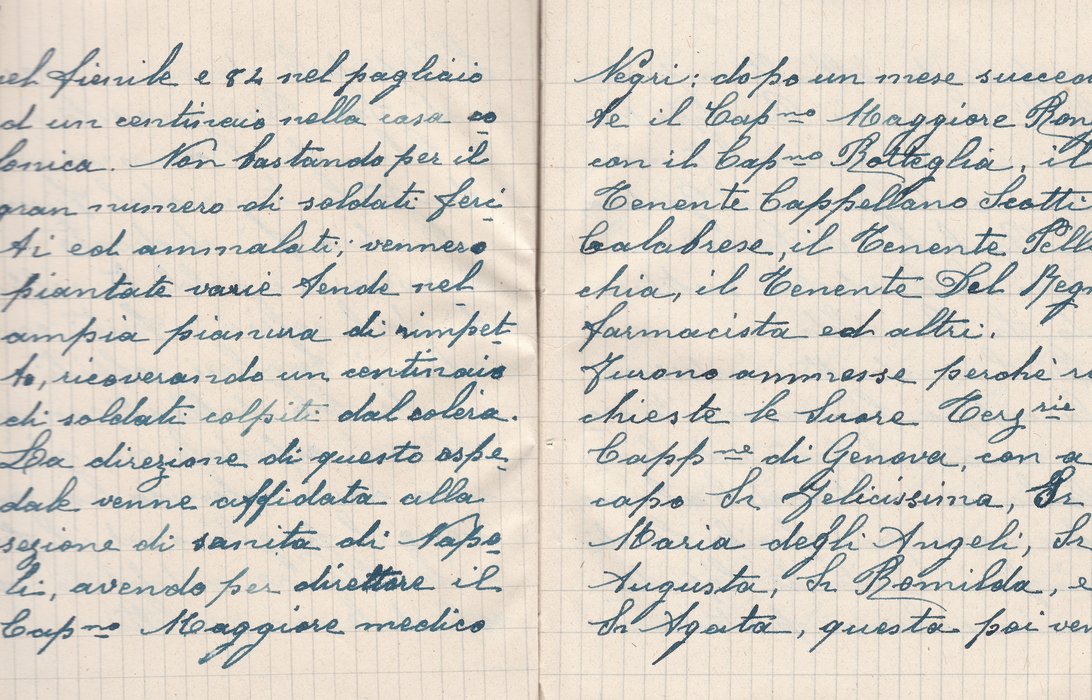 nel fienile e 82 nel pagliaio
d un centinaio nella casa co
lonica. Non bastando per il
gran numero di soldati feri
ti ed ammalati; vennero
piantate varie tende nel
ampia pianura di rimpet-
to, ricoverando un centinaio
di soldati colpiti dal colera.
La direzione di questo ospe
dale venne affidata alla
sezione di sanita di Napo
li, avendo per direttore il
Capno Maggiore medico
Negri: dopo un mese succe
te il Capno Maggiore Ron
con il Capno Rotteglia, il
Tenente Cappellano Scotti
Calabrese, il Tenente Pell
chia, il Tenente Del Regn
farmacista ed altri.
Furono ammesse perchè ri
chieste le Suore Terzrie
Cappne di Genova, con a
capo Sr Felicissima, Sr
Maria degli Angeli, Sr
Augusta, Sr Romilda, e
Sr Agata, questa poi ven